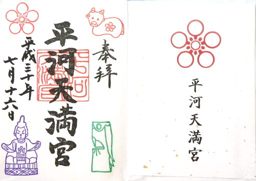 奉拝
平河天満宮
平成三十年
七月十六日
平河天満宮